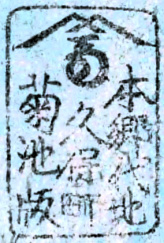 本郷代地
久保町
菊池版